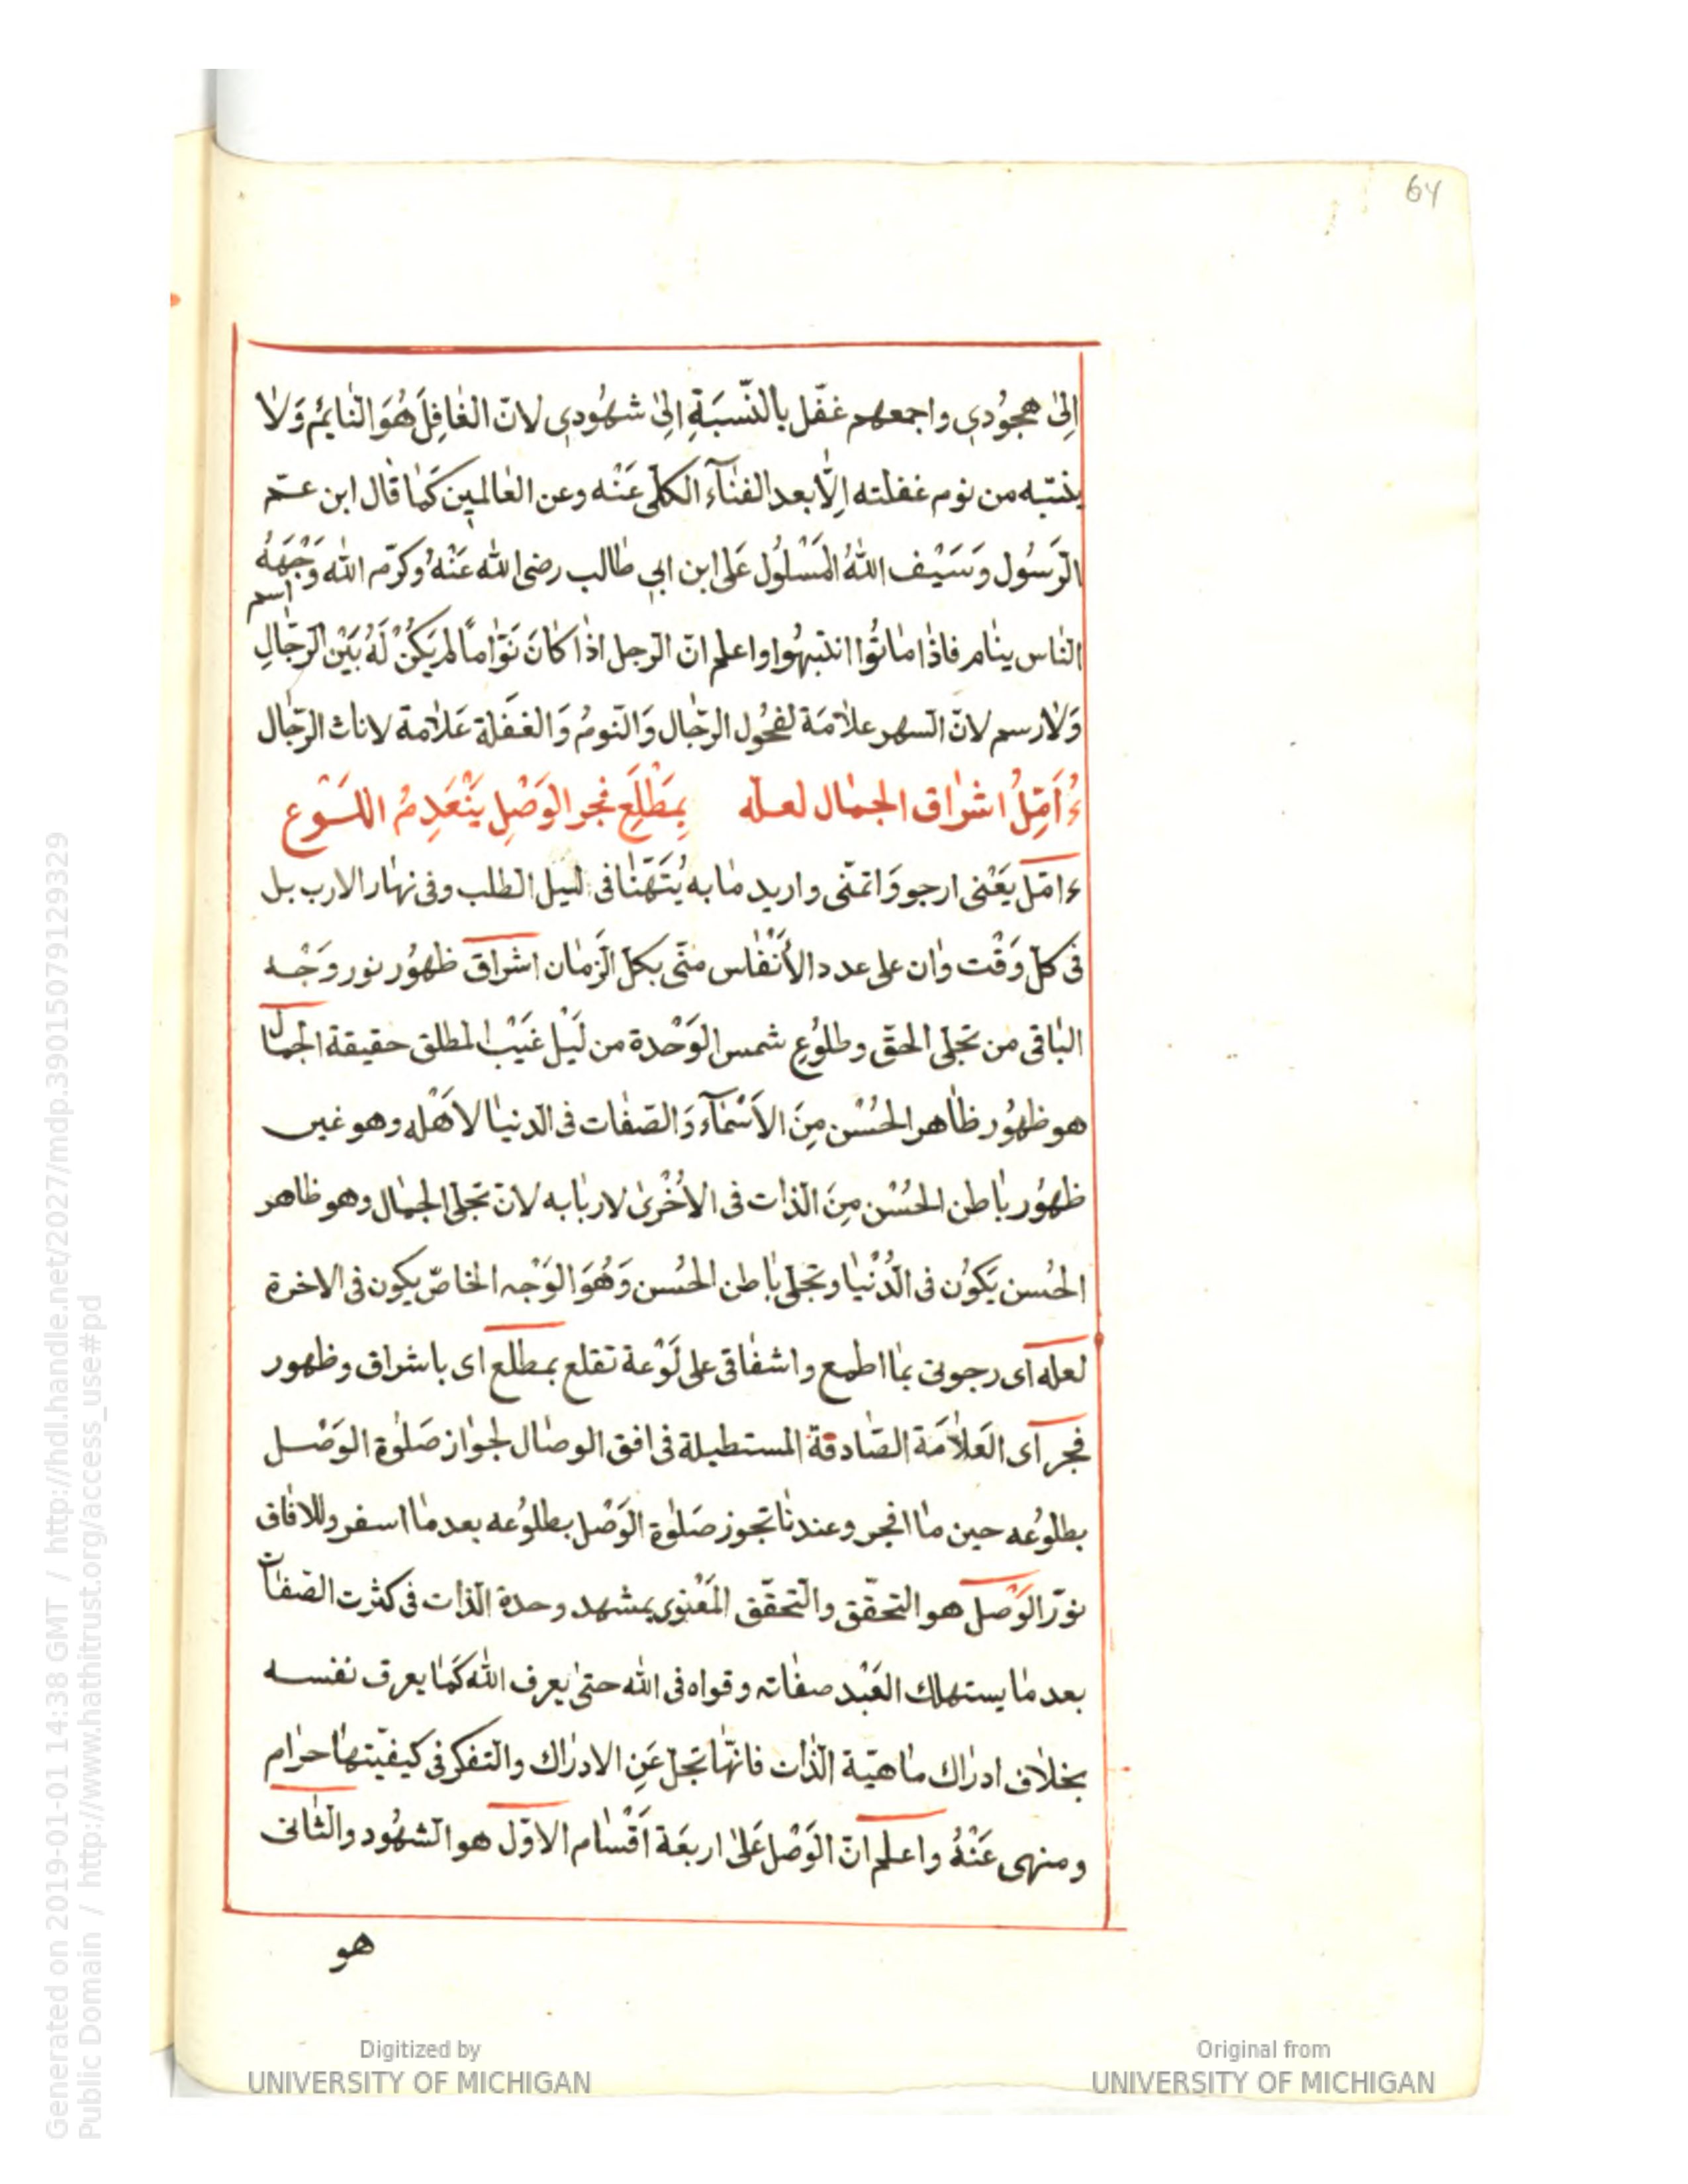 64
اِلىٰ هجوُدي واجمعهم غفّل بالنّسبَةِ اِلىٰ شهُودي لانّ الغٰافِلَ هُوَ النٰايمُ وَلاٰ
ينتبه من نوم غفلته اِلّا بعد الفنٰآء الكلّى عَنْه وعن العٰالمين كَمٰا قٰال ابن عمّ
الرَسُول وَسَيْف اللهُ المَسْلُول عَلى ابن ابي طٰالب رضى الله عَنْهُ وكرّم الله وَجْهَهُ
النٰاس ينٰام فاذٰا مٰاتُوا انتبهُوا واعلم انّ الرّجل اذٰا كٰانَ نَوّٰامًا لم يَكُنْ لَهُ بَيْنَ الرّجٰالِ اسم
وَلاٰ رسم لانّ السهر علاٰمَة لفحُول الرجٰال وَالنّومُ وَالغفَلة عَلاٰمة لاناث الرّجٰال
ءُاَمِّلُ اشرٰاق الجمٰال لعلّه بِمَطْلَعِ فجر الوَصْلِ يَنْعَدِمُ اللسْوع
ءامّل يَعْنى ارجو وَاتمنّى واريد مٰا به يُتَهَنّٰا فى ليل الطلب وفى نهٰار الارب بل
فى كلّ وَقْت وٰان على عدد الأنْفٰاس منّى بكلّ الزمٰان اشرٰاق ظهُور نور وَجْه
البٰاقى من تجلى الحقّ وطلوُعِ شمس الوَحْدة من لَيْل غَيْب المطلق حقيقة الجمٰال
هو ظهُور ظٰاهر الحُسْن مِنَ الاَسْمٰآء وَالصّفٰات فى الدّنيٰا لاَهْله وهو غير
ظهُور بٰاطن الحُسْن مِنَ الذّات فى الاُخْرىٰ لاربٰابه لانّ تجلى الجمٰال وهو ظاهر
الحُسن يَكوُن فى الدُنْيٰا وتجلى بٰاطن الحُسن وَهُوَ الوَجْه الخاصّ يكون فى الاخرة
لعله اى رجوتى بمٰا اطمع واشفٰاقى على لَوْعة تقلع بمطلع اى باشراق وظهور
فجر اى العَلاٰمَة الصّٰادقة المستطيلة فى افق الوصٰال لجوٰاز صَلوٰة الوَصْل
بطلوُعه حين مٰا انفجر وعندنٰا تجوز صَلوٰة الوَصْل بطلوُعه بعد مٰا اسفر وللافٰاق
نوّر الوَصل هو التحقّق والتحقّق المَعْنوى بمشهد وحدة الذّات فى كثرت الصّفٰات
بعد مٰا يستهلك العَبْد صفٰاته وقواه فى الله حتىٰ يعرف الله كَمٰا يعرف نفسه
بخلاٰف ادرٰاك مٰاهيّة الذٰات فانهّٰا تجلّ عَنِ الادرٰاك والتفكر فى كيفيّتهٰا حرٰام
ومنهى عَنْهُ واعلم انّ الوَصْل عَلىٰ اربعَة اَقْسٰام الاوّل هو الشهُود والثٰانى
هو
Digitized by
UNIVERSITY OF MICHIGAN
Original from
UNIVERSITY OF MICHIGAN
Generated on 2019-01-01 14:38 GMT / http://hdl.handle.net/2027/mdp.39015079129329
Public Domain / http://www.hathitrust.org/access_use#pd